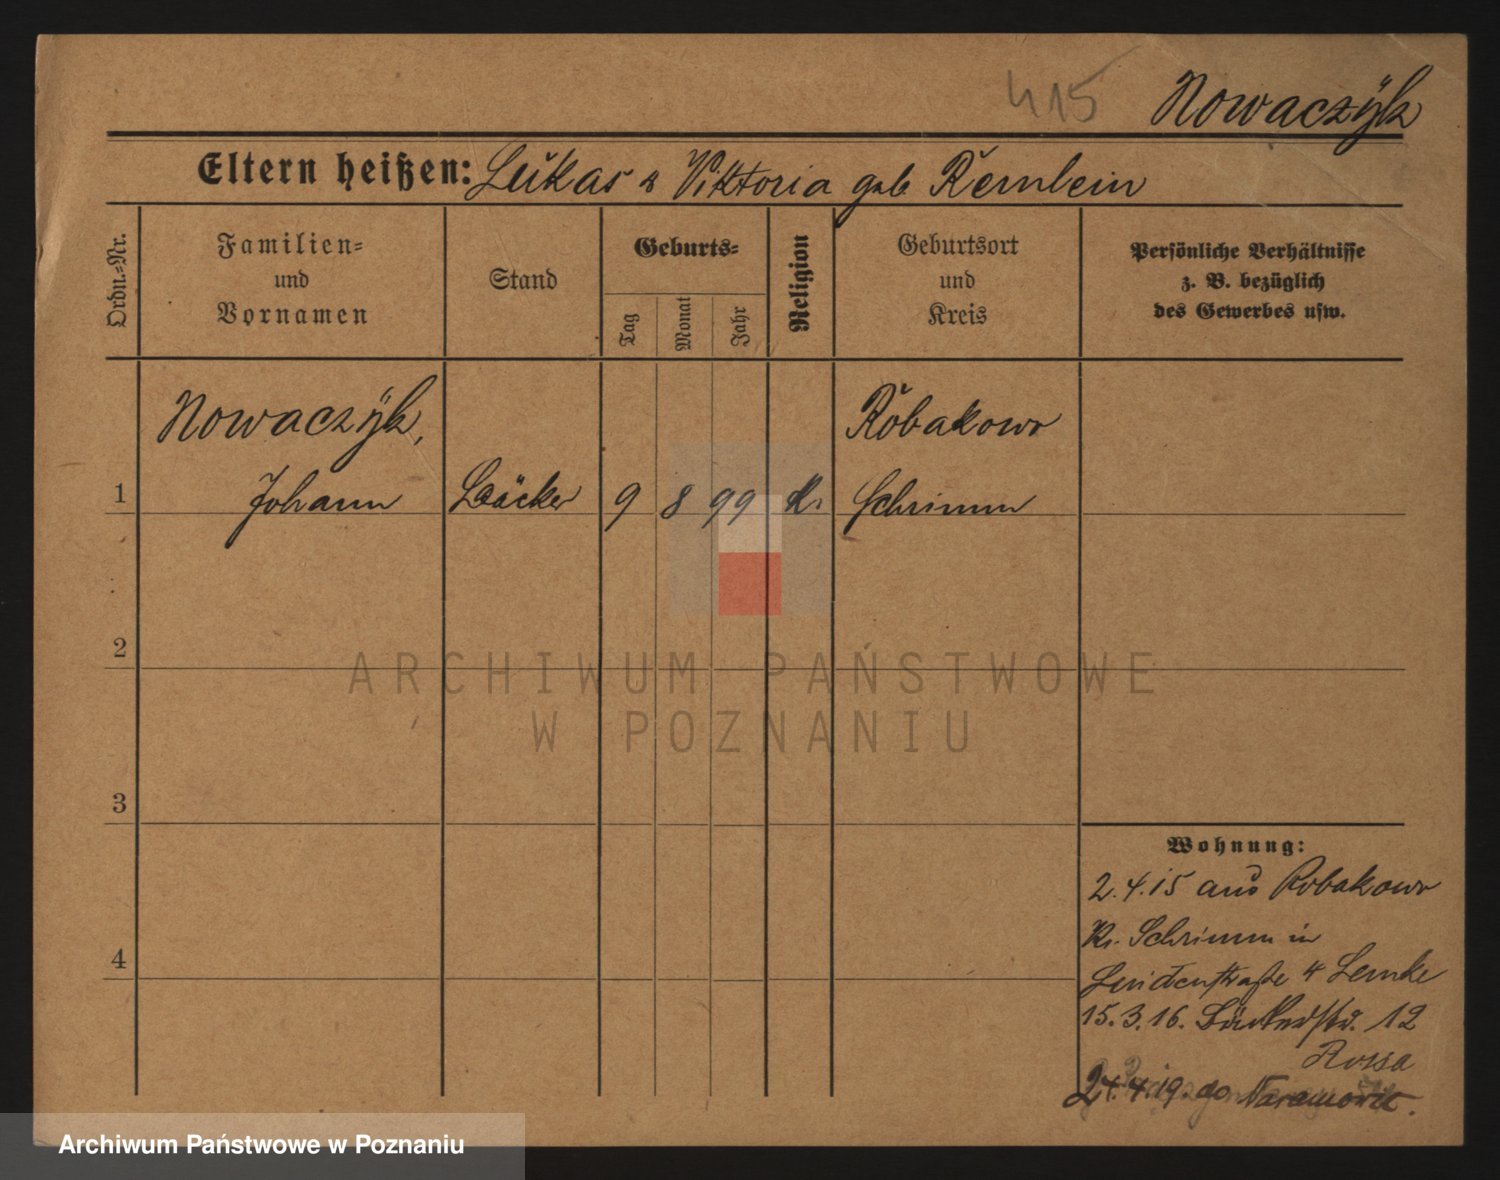 415 Nowaczÿk
Eltern heißen: Lukas u Viktoria geb
Ordn.=Nr.
Familien=
und
Vornamen
Stand
Geburts=
Tag
Monat
Jahr
Religion
Geburtsort
und
Kreis
Persönliche Verhältnisse
z. B. bezüglich
des Gewerbes usw.
Nowaczÿk,
Robakowo
1 Johann Bäcker 9 8 99 k. Schrimm
2
ARCHIWUM PAŃSTWOWE
W POZNANIU
3
Wohnung:
2.4.15 aus Robakowo
Kr. Schrimm in
4
Lindenstraße 4 Lemke
15.3.16. 12
Rossa
24.4.19. do Naramowic.
Archiwum Państwowe w Poznaniu